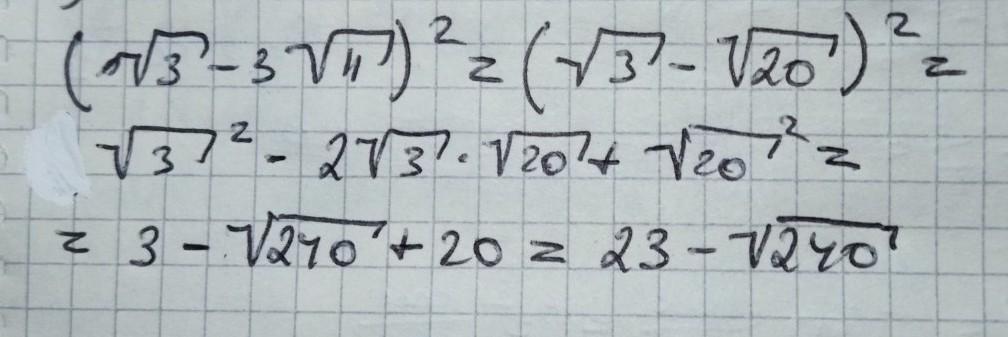 (√3 - 3√11)² = (√3 - √20)² =
√3² - 2√3 · √20 + √20² =
= 3 - √240 + 20 = 23 - √240